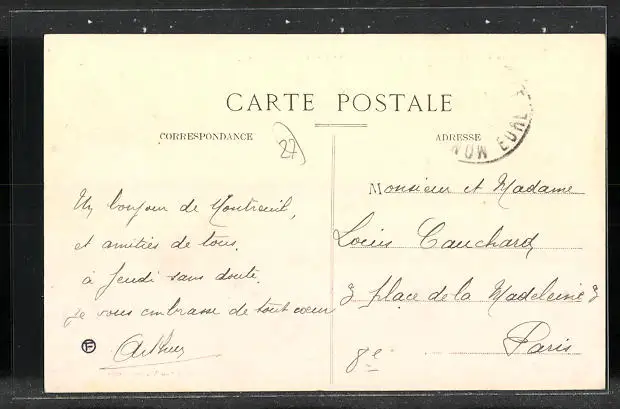 CARTE POSTALE
CORRESPONDANCE
27
ADRESSE
Un bonjour de Montreuil,
et amitiés de tous.
à Jeudi sans doute.
je vous embrasse de tout cœur
Arthur
Monsieur et Madame
Louis Cauchard
3 place de la Madeleine 3
Paris
8e